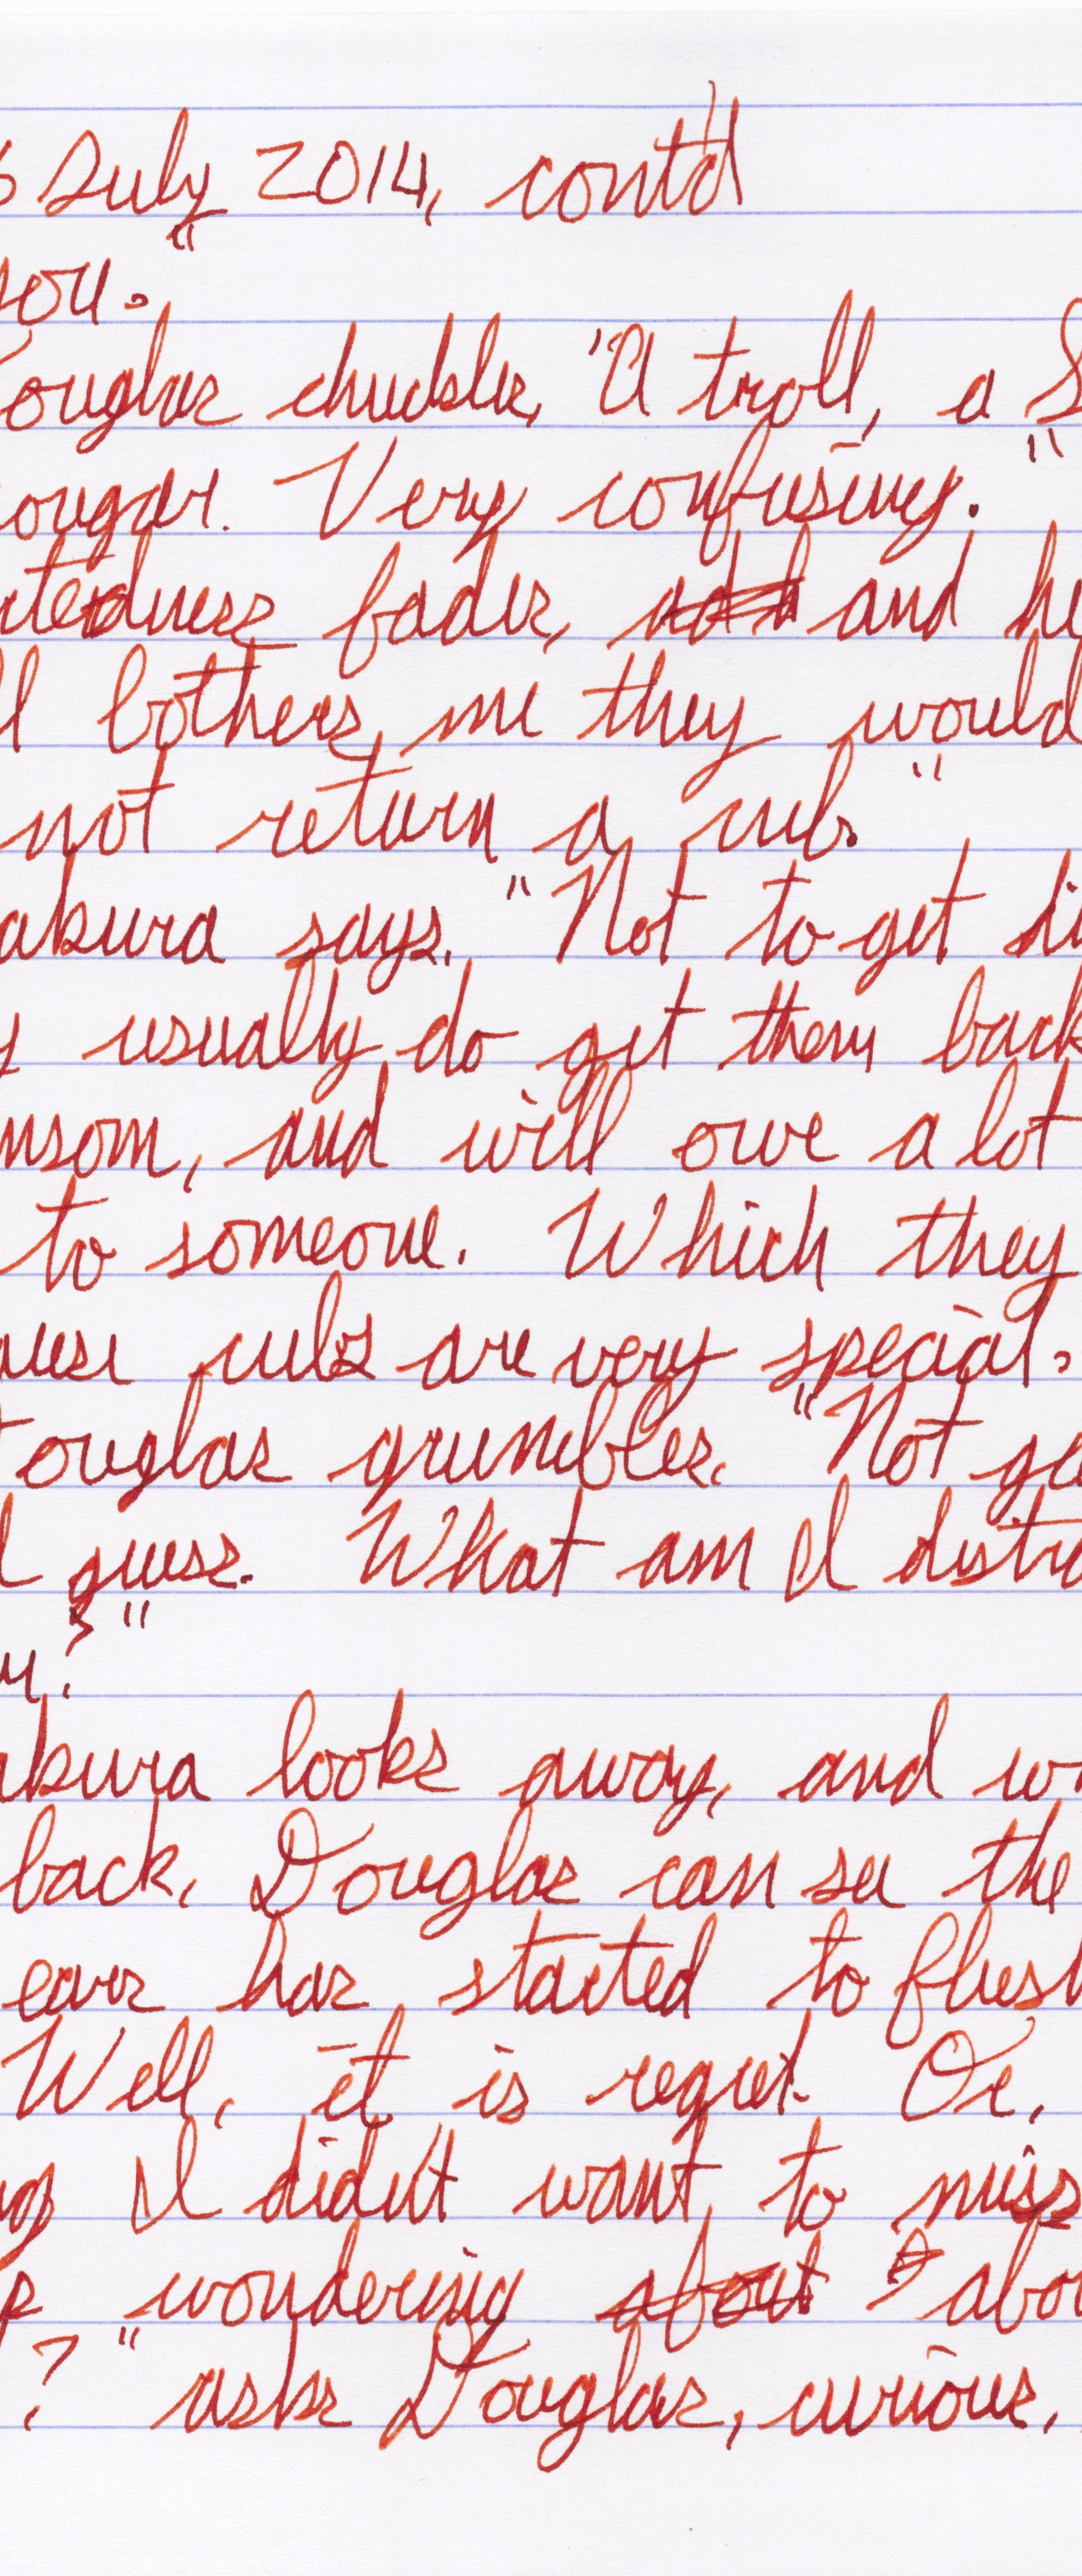 6 July 2014, cont'd
you."
ouglas chuckles, "A troll, a S
ougar. Very confusing."
tedness fades, and he
ll bothers me they would
not return a cub."
akura says, "Not to get
y usually do get them back
nsom, and will owe a lot
to someone. Which they
ause cubs are very special.
Douglas grumbles. "Not
I guess. What am I distra
?"
akura looks away, and
back, Douglas can see the
ears has started to flush
Well, it is regret. Or,
ng I didn't want to miss
wondering about abou
?" asks Douglas, curious,